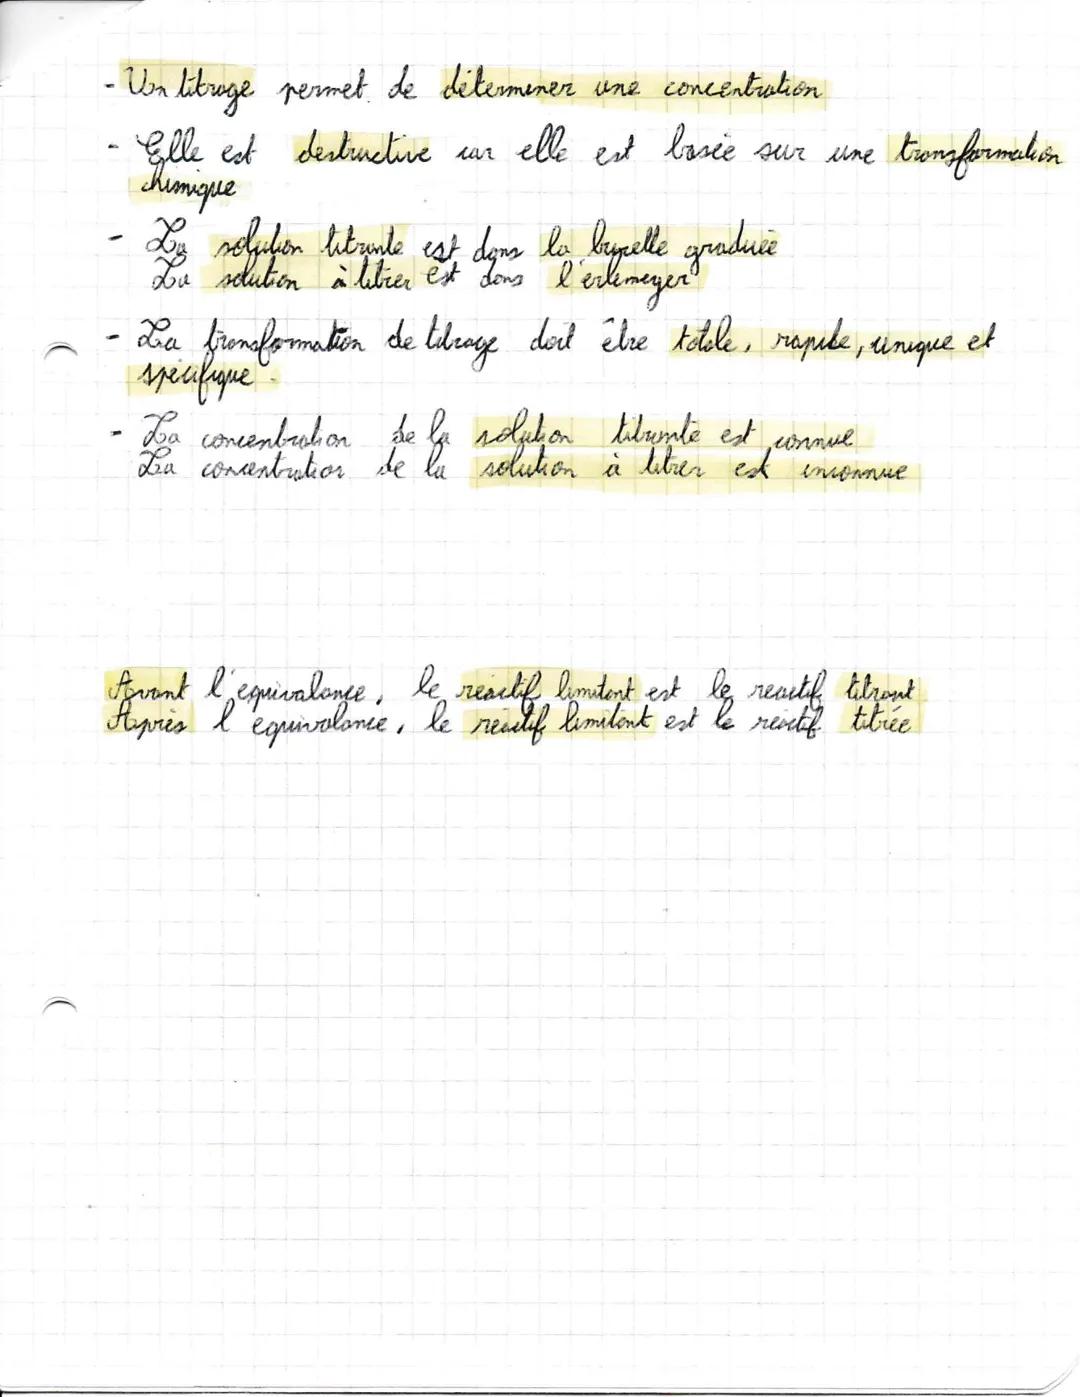 - Un titrage permet de déterminer une concentration
- Elle est destructive car elle est basée sur une transformation
chimique
- La solution titrante est dans la burette graduée
La solution à titrer est dans l'erlemeyer
- La transformation de titrage doit être totale, rapide, unique et
spécifique.
- La concentration de la solution titrante est connue
La concentration de la solution à titrer est inconnue
Avant l'equivalence, le réactif limitant est le reactif titrant
Après l'equivalance, le réactif limitant est le réactif titrée